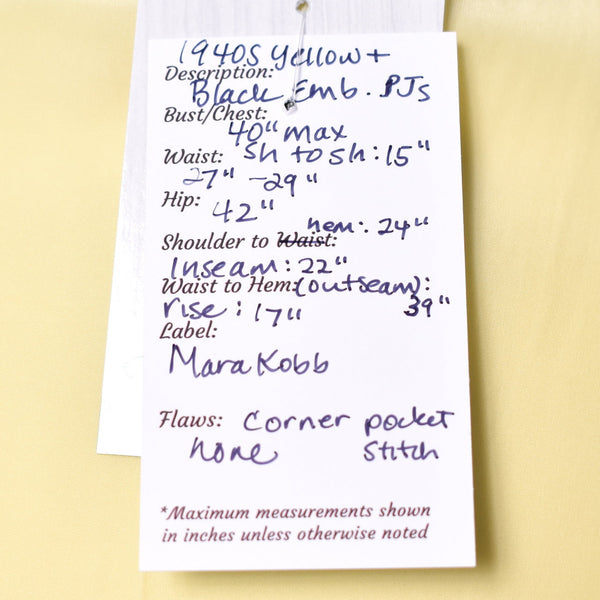 1940s Yellow +
Description:
Black Emb. PJs
Bust/Chest:
40" max
Waist: Sh to Sh: 15"
27" - 29"
Hip:
42"
hem: 24"
Shoulder to Waist:
Inseam: 22"
Waist to Hem: (outseam):
rise: 17" 39"
Label:
Mara Kobb
Flaws: Corner pocket
none stitch
*Maximum measurements shown
in inches unless otherwise noted